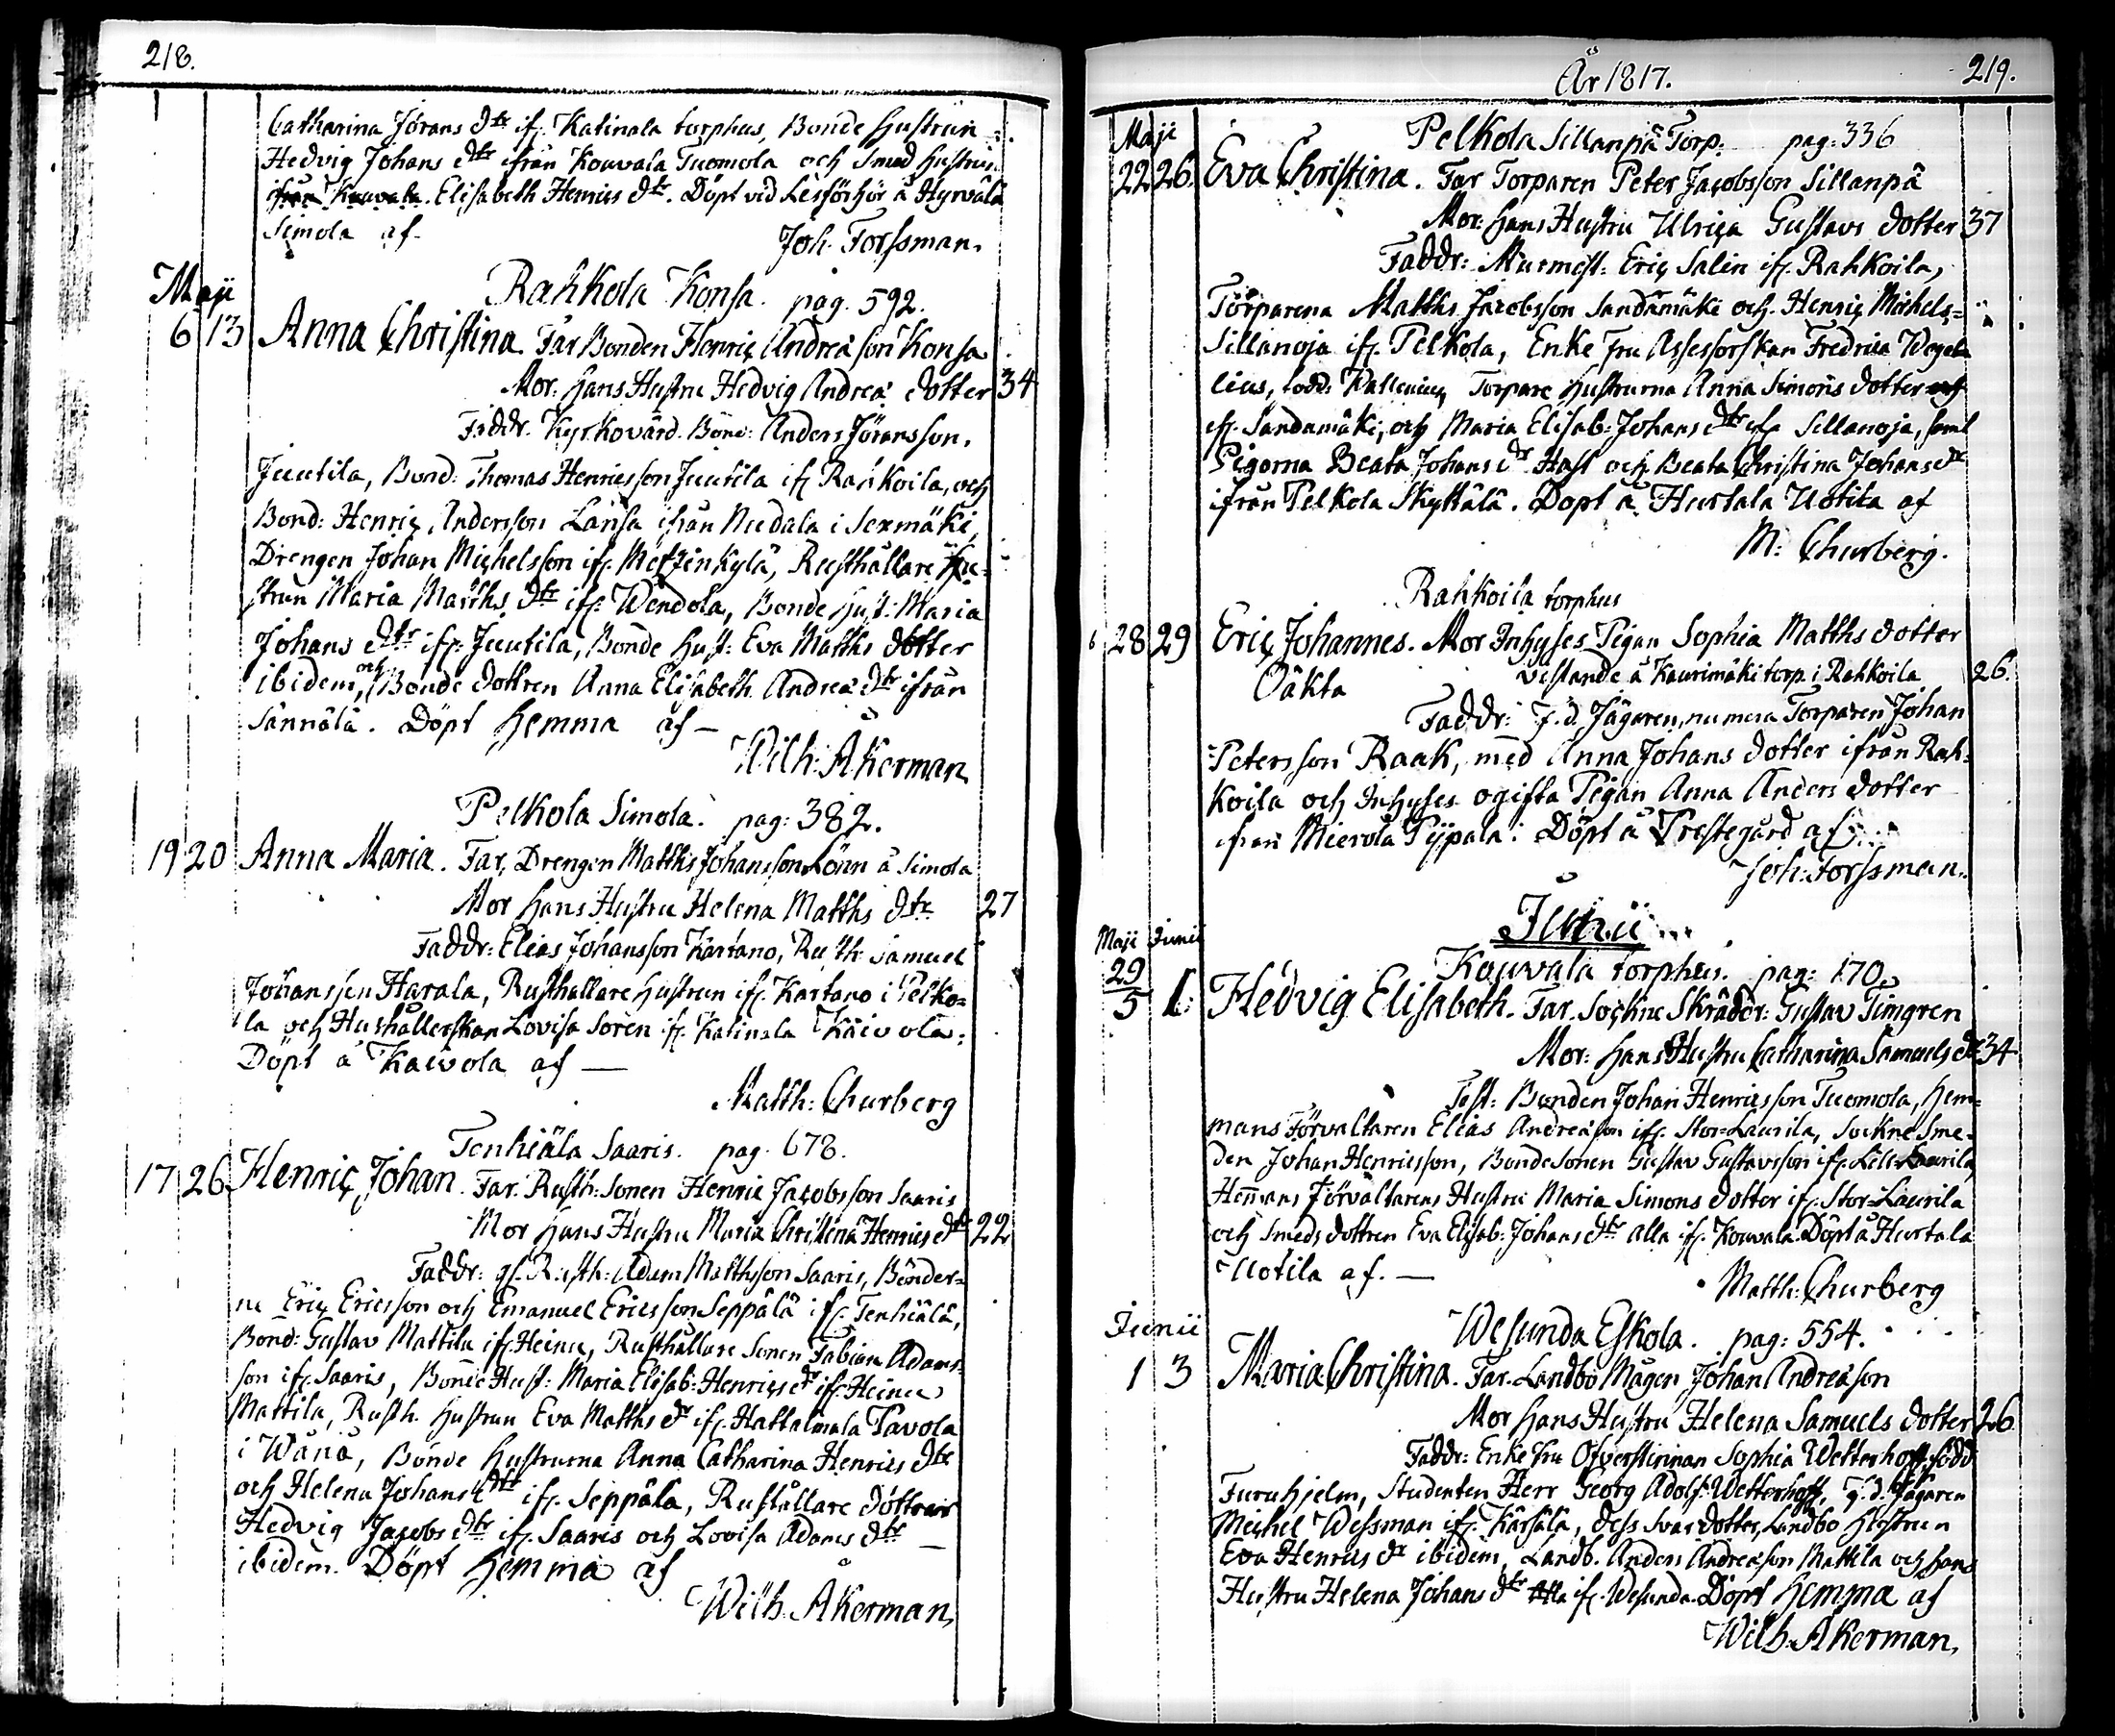 218.
Catharina Jörans dtr if. Katinala torphus, Bonde Hustrun
Hedvig Johans dtr ifrån Kouvala Tuomola och Smed Hustrun
ifrån Kouvala. Elisabeth Henrics dtr. Döpt vid Läsförhör å Hyrvälä
Simola af
Joh. Forssman.
Maji
Rahkola Konsa. pag. 592.
6 13 Anna Christina. Far Bonden Henric Andreæ son Konsa
Mor. Hans Hustru Hedvig Andreæ dotter 34
Faddr. Kyrkovärd. Bond: Anders Jöransson,
Juutila, Bond: Thomas Henricsson Juutila if. Rahkoila, och
Bond: Henric Andersson Länsa ifrån Nudala i Sexmäki,
Drengen Johan Michelsson if. Metzenkylä, Rusthållare Hu=
strun Maria Matths dtr if. Wendola, Bonde Hust: Maria
Johans dtr if. Juutila, Bonde Hust: Eva Matths dotter
ibidem, och Bonde dottren Anna Elisabeth Andreæ dtr ifrån
Sännälä. Döpt Hemma af —
Wilh: Åkerman
Pelkola Simola. pag: 382.
19 20 Anna Maria. Far, Drengen Matths Johansson Lönn å Simola
Mor Hans Hustru Helena Matths dtr 27
Faddr: Elias Johansson Kartano, Rusth: Samuel
Johansson Harala, Rusthållare Hustrun if. Kartano i Pelko=
la och Hushållerskan Lovisa Soren if. Katinala Käivola.
Döpt å Kaivola af —
Matth: Churberg
Tenhiälä Saaris. pag. 678.
17 26 Henric Johan. Far. Rusth: Sonen Henric Jacobsson Saaris
Mor Hans Hustru Maria Christina Henrics dtr 22
Faddr: gl. Rusth: Adam Matthsson Saaris, Bönder=
ne Eric Ericsson och Emanuel Ericsson Seppälä if. Tenhiälä,
Bond: Gustav Mattila if. Heinu, Rusthållare Sonen Fabian Adams=
son if. Saaris, Bonde Hust: Maria Elisab: Henrics dr if. Heinu
Mattila, Rusth. Hustrun Eva Matths dr if. Hattelmala Pavola
i Wånå, Bonde Hustrurna Anna Catharina Henrics dtr
och Helena Johans dtr if. Seppälä, Rusthållare döttrar
Hedvig Jacobs dtr if. Saaris och Lovisa Adams dtr
ibidem. Döpt Hemma af
Wilh. Åkerman,
År 1817. 219.
Maji
Pelkola Sillanpä Torp. pag: 336
22 26 Eva Christina. Far Torparen Peter Jacobsson Sillanpä
Mor: Hans Hustru Ulrica Gustavs dotter 37
Faddr: Murmest: Eric Salin if. Rahkoila,
Torparena Matths Jacobsson Sandamäki och Henric Michels=
Sillanoja if. Pelkola, Enke Fru Assessorskan Fredrica Wege
lius, född Wallenius, Torpare Hustrurna Anna Simons dotter
if. Sandamäki, och Maria Elisab: Johans dtr if. Sillanoja, samt
Pigorna Beata Johans dr Hast och Beata Christina Johans dr
ifrån Pelkola Skyttälä. Döpt å Hurtala Uotila af
M: Churberg.
Rahkoila torphus
28 29 Eric Johannes. Mor Inhyses Pigan Sophia Matths dotter
Oäkta vistande å Kaurimäki torp i Rahkoila 26.
Faddr: f. d. Jägaren, numera Torparen Johan
Petersson Raak, med Anna Johans dotter ifrån Rah=
koila och Inhyses ogifta Pigan Anna Anders dotter
ifrån Mierola Pijpala. Döpt å Prestegård af
Joh: Forssman.
Junii
Maji Junii
Kouvala torphus. pag: 170.
29/5 1. Hedvig Elisabeth. Far. Sockne Skräddr: Gustav Timgren
Mor: Hans Hustru Catharina Samuels dr 34
Test: Bonden Johan Henricsson Tuomola, Hem=
mans Förvaltaren Elias Andreæson if. Stor=Laurila, Sockne Sme=
den Johan Henricsson, Bonde Sonen Gustav Gustavsson if. Lill=Laurila,
Hemmans Förvaltarens Hustru Maria Simons dotter if. Stor=Laurila
och Smeds dottren Eva Elisab: Johans dtr alla if. Kouvala. Döpt å Hurtala
Uotila af. —
Matth: Churberg
Junii
Wesunda Eskola. pag: 554.
1 3 Maria Christina. Far. Landbo Mågen Johan Andreæson
Mor Hans Hustru Helena Samuels dotter 26
Faddr: Enke Fru Öfverstinnan Sophia Wetterhoff, född
Furuhjelm, Studenten Herr Georg Adolf Wetterhoff, f. d. Jägaren
Michel Wessman if. Kärsälä, dess Svar dotter, Landbo Hustrun
Eva Henrics dr ibidem, Landb. Anders Andreæson Mattila och hans
Hustru Helena Johans dtr alla if. Wesunda. Döpt Hemma af
Wilh. Åkerman,